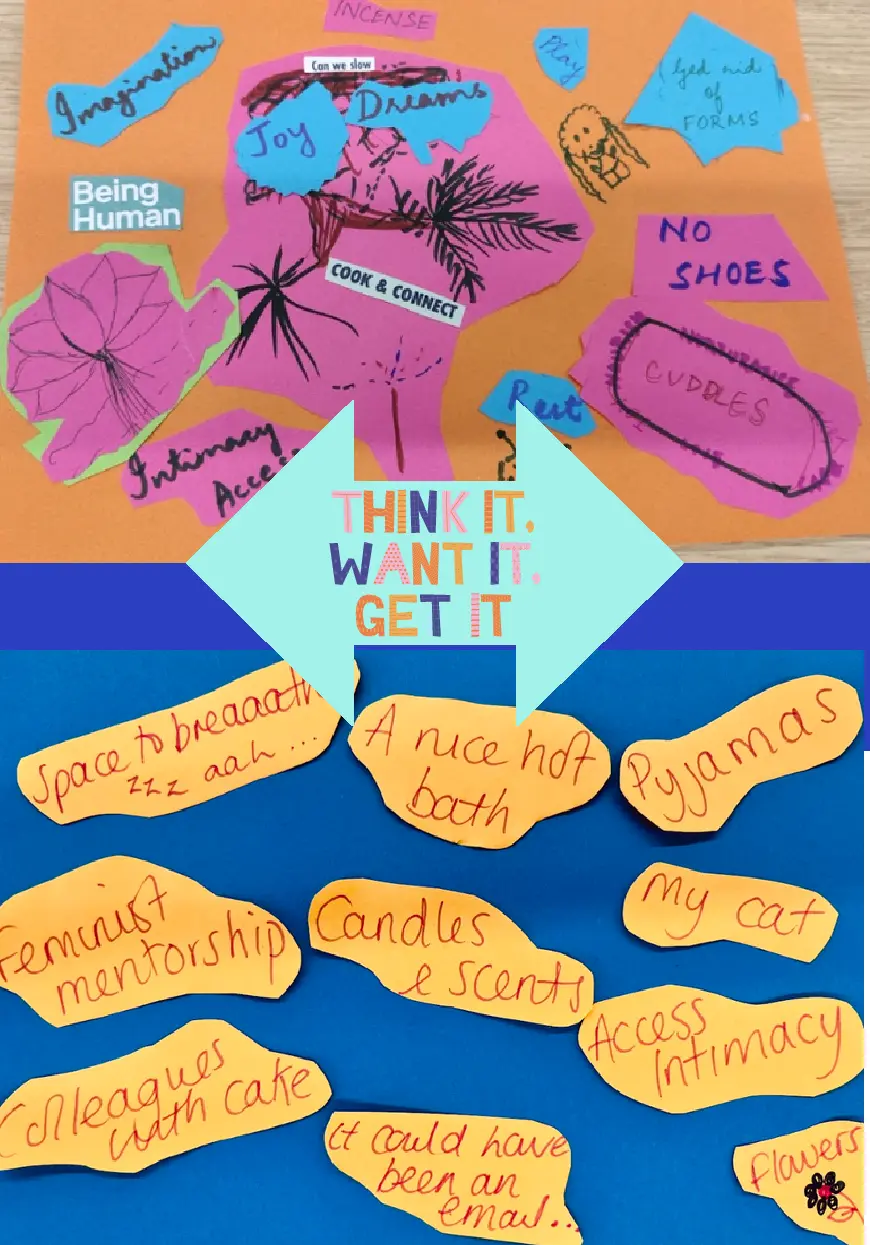 INCENSE
Can we slow
Imagination
Play
Dreams
Joy
Ged rid
of
FORMS
Being
Human
NO
SHOES
COOK & CONNECT
CUDDLES
Rest
Intimacy
Access
THINK IT.
WANT IT.
GET IT
Space to breaaath
zzz aah...
A nice hot
bath
Pyjamas
Feminist
mentorship
Candles
& scents
My cat
Access
Intimacy
Colleagues
with cake
It could have
been an
email...
Flowers